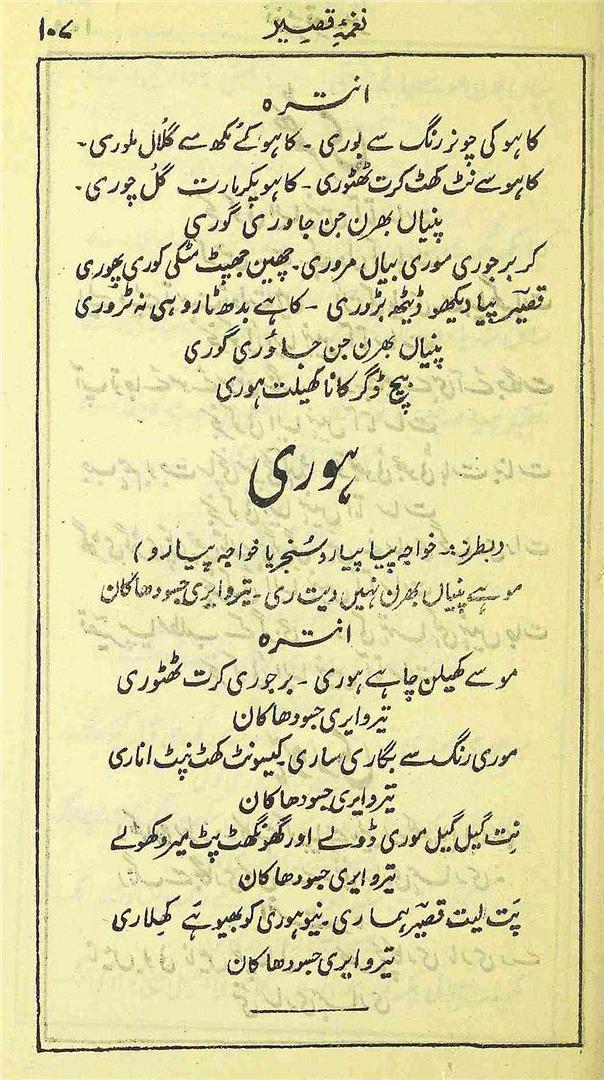 نغمۂ قصیر
۱۰۷
انترہ
کاہو کی چونر رنگ سے بوری - کاہو کے مُکھ سے گلال ملوری -
کاہو سے نٹ کھٹ کرت ٹھٹوری - کاہو پکر مارت گل چوری -
پنیاں بھرن جن جاؤ ری گوری
کر برجوری موری بیاں مروری - چھین جھپٹ مٹکی کوری پھوری
قصیرؔ پیا دیکھو ڈیٹھ بڑوری - کاہے بدھ ٹارو ہی نہ ٹروری
پنیاں بھرن جن جاؤ ری گوری
بیچ ڈگر کانا کھیلت ہوری
ہوری
(بطرز: خواجہ پیا پیارو سنجر یا خواجہ پیارو)
موہے پنیاں بھرن نہیں دیت ری - تیرو ایری جسودھا کان
انترہ
موسے کھیلن چاہے ہوری - برجوری کرت ٹھٹوری
تیرو ایری جسودھا کان
موری رنگ سے بگاری ساری - کیسو نٹ کھٹ نپٹ اناری
تیرو ایری جسودھا کان
نِت گیل گیل موری ڈولے اور گھونگھٹ پٹ میرو کھولے
تیرو ایری جسودھا کان
پَت لیت قصیرؔ ہماری - نیو ہوری کو بھیو ہے کھلاری
تیرو ایری جسودھا کان